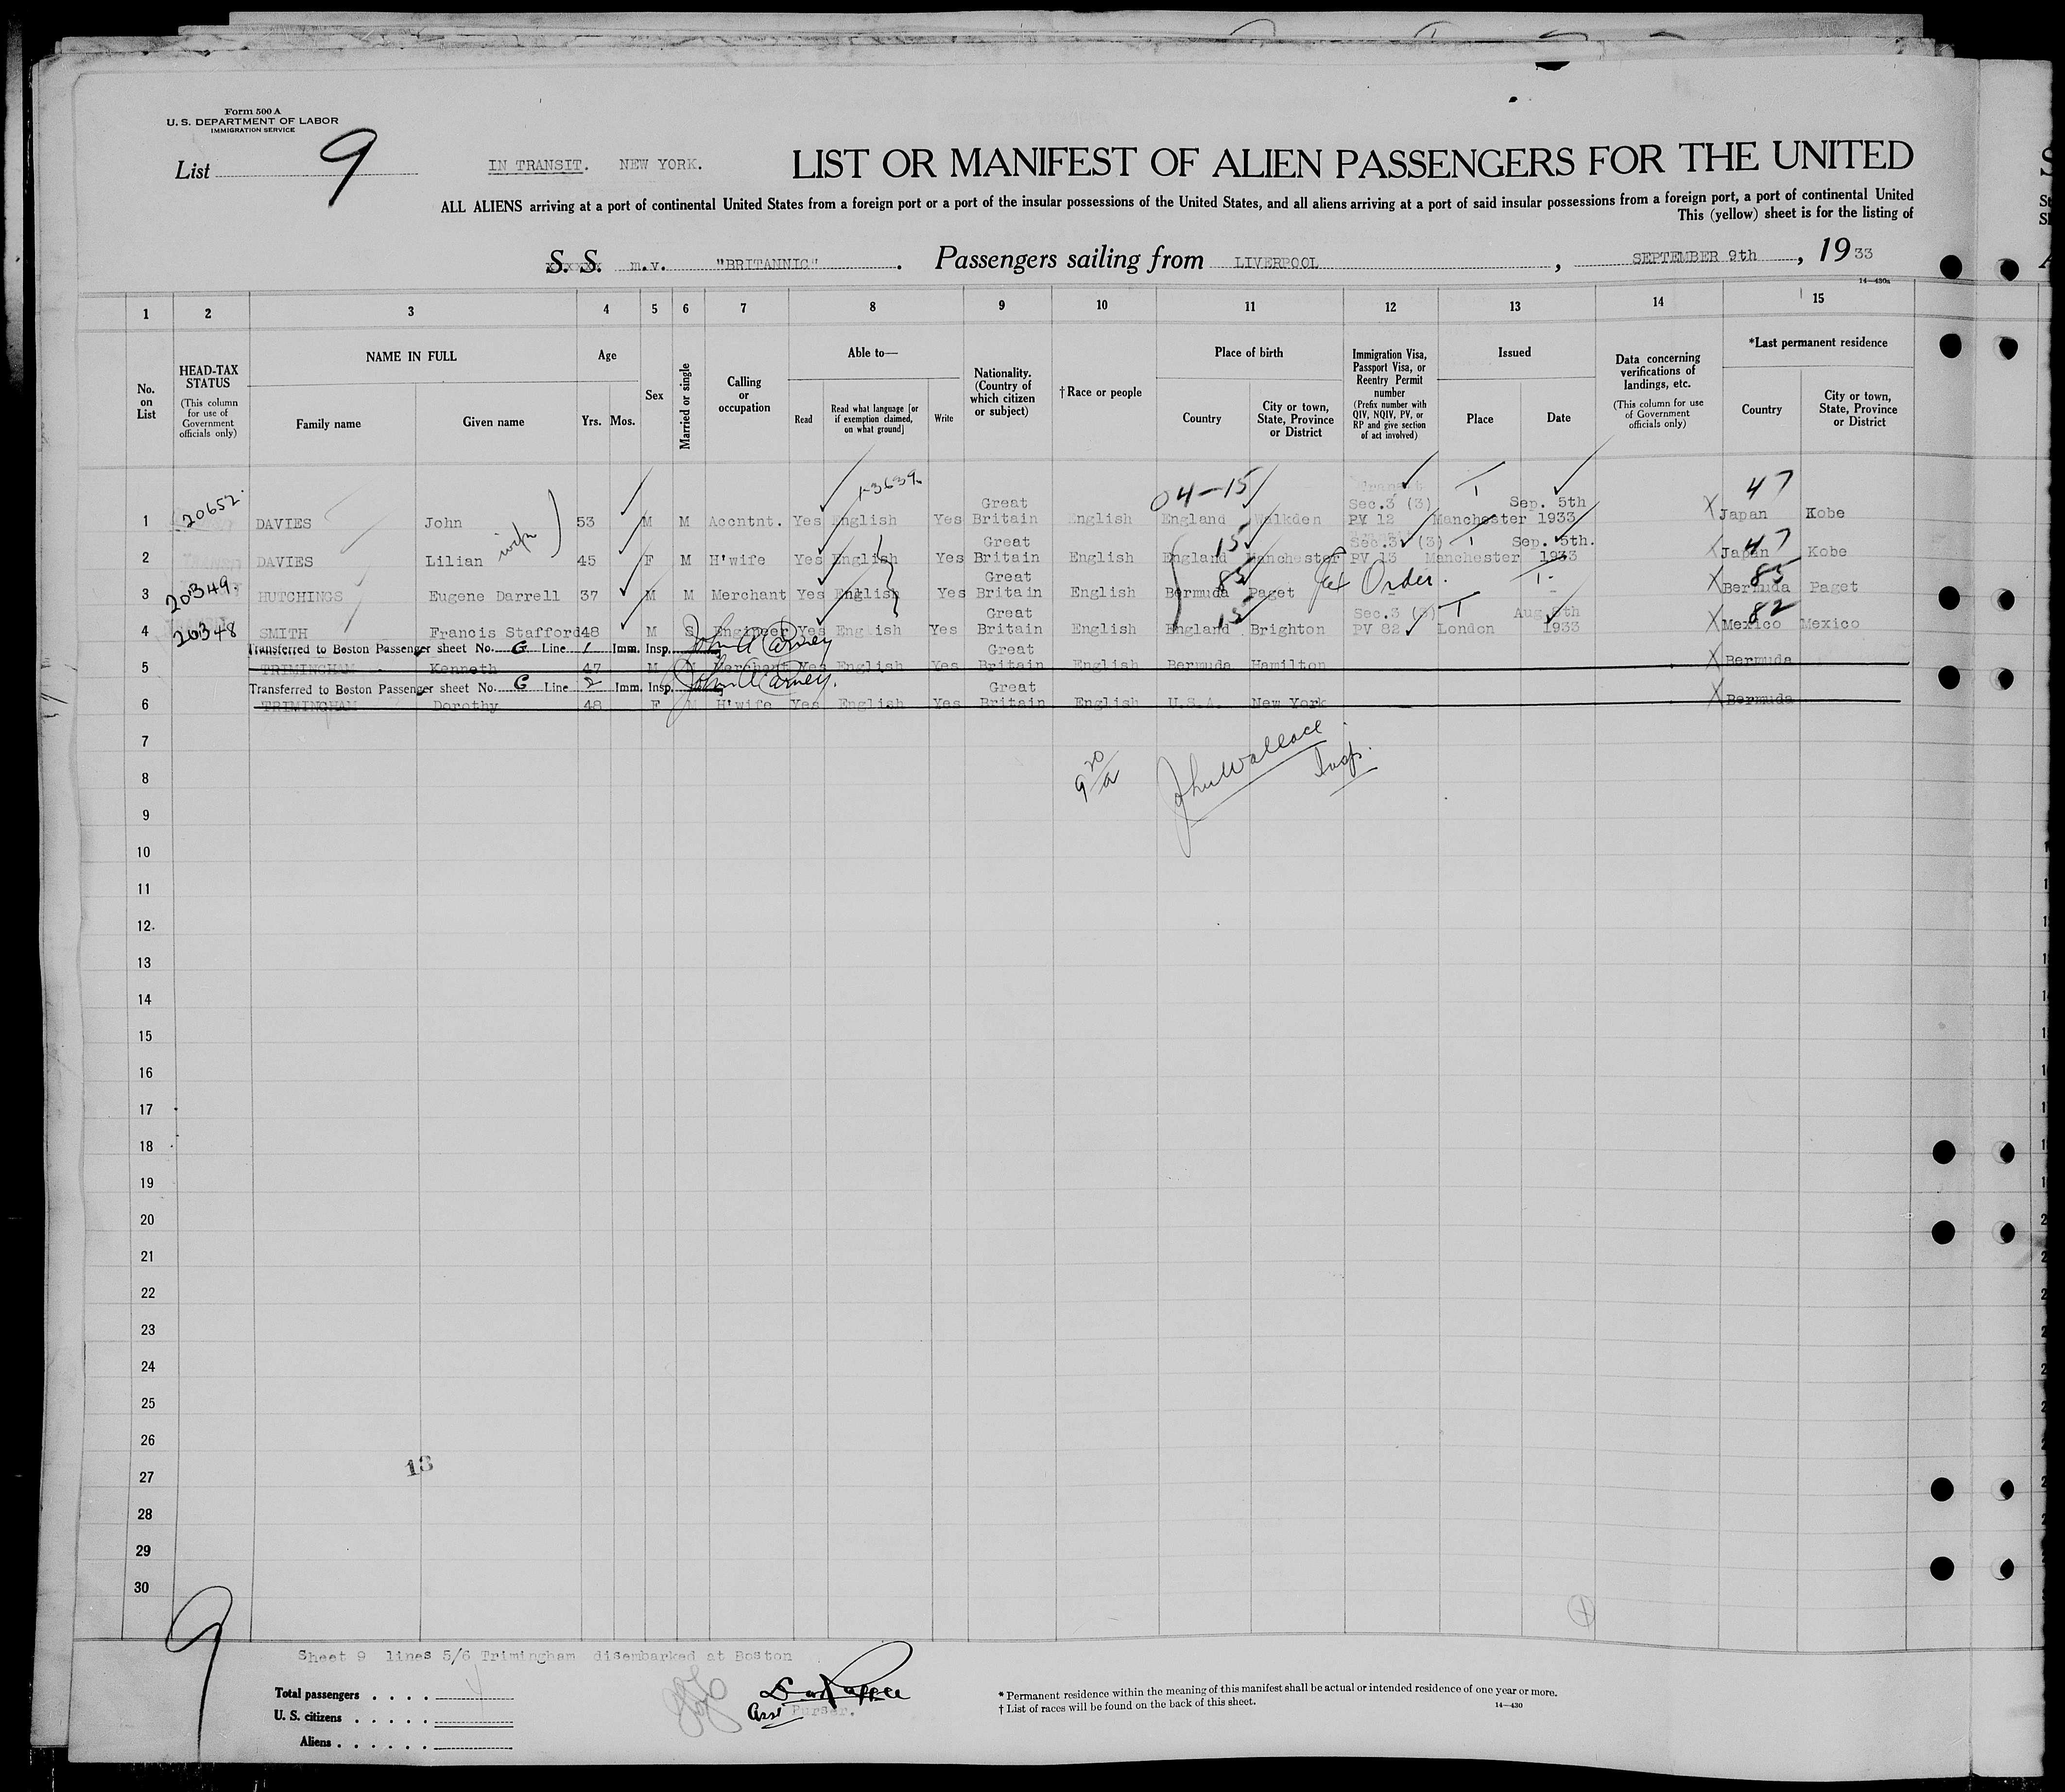 Form 500 A
U. S. DEPARTMENT OF LABOR
IMMIGRATION SERVICE
List 9
IN TRANSIT. NEW YORK.
LIST OR MANIFEST OF ALIEN PASSENGERS FOR THE UNITED
ALL ALIENS arriving at a port of continental United States from a foreign port or a port of the insular possessions of the United States, and all aliens arriving at a port of said insular possessions from a foreign port, a port of continental United
This (yellow) sheet is for the listing of
S. S. m.v. "BRITANNIC". Passengers sailing from LIVERPOOL, SEPTEMBER 9th, 1933
14—430a
1 2 3 4 5 6 7 8 9 10 11 12 13 14 15
No. on List
HEAD-TAX STATUS (This column for use of Government officials only)
NAME IN FULL
Family name Given name
Age
Yrs. Mos.
Sex
Married or single
Calling or occupation
Able to—
Read Read what language [or if exemption claimed, on what ground] Write
Nationality. (Country of which citizen or subject)
† Race or people
Place of birth
Country City or town, State, Province or District
Immigration Visa, Passport Visa, or Reentry Permit number (Prefix number with QIV, NQIV, PV, or RP and give section of act involved)
Issued
Place Date
Data concerning verifications of landings, etc. (This column for use of Government officials only)
*Last permanent residence
Country City or town, State, Province or District
20652. 1-3639. 04-15 Transit T 47
Great Sec.3 (3) Sep. 5th
1 DAVIES John 53 M M Accntnt. Yes English Yes Britain English England Walkden PV 12 Manchester 1933 X Japan Kobe
wife Great 15 Sec.3 (3) T Sep. 5th. 47
2 DAVIES Lilian 45 F M H'wife Yes English Yes Britain English England Manchester PV 13 Manchester 1933 Japan Kobe
20349. Great 85 Ex Order. T - 85
3 HUTCHINGS Eugene Darrell 37 M M Merchant Yes English Yes Britain English Bermuda Paget X Bermuda Paget
20348 Great 15 Sec.3 (3) T Aug 8th 82
4 SMITH Francis Stafford 48 M S Engineer Yes English Yes Britain English England Brighton PV 82 London 1933 X Mexico Mexico
Transferred to Boston Passenger sheet No. G Line 1 Imm. Insp. John A Carney Great
5 TRIMINGHAM Kenneth 47 M M Merchant Yes English Yes Britain English Bermuda Hamilton X Bermuda
Transferred to Boston Passenger sheet No. G Line 2 Imm. Insp. John A Carney. Great
6 TRIMINGHAM Dorothy 48 F M H'wife Yes English Yes Britain English U.S.A. New York X Bermuda
7
9 20/a John Wallace Insp.
8
9
10
11
12
13
14
15
16
17
18
19
20
21
22
23
24
25
26
13
27
28
29
30
9
Sheet 9 lines 5/6 Trimingham disembarked at Boston
Total passengers
U. S. citizens
Aliens
Asst Purser.
* Permanent residence within the meaning of this manifest shall be actual or intended residence of one year or more.
† List of races will be found on the back of this sheet.
14—430